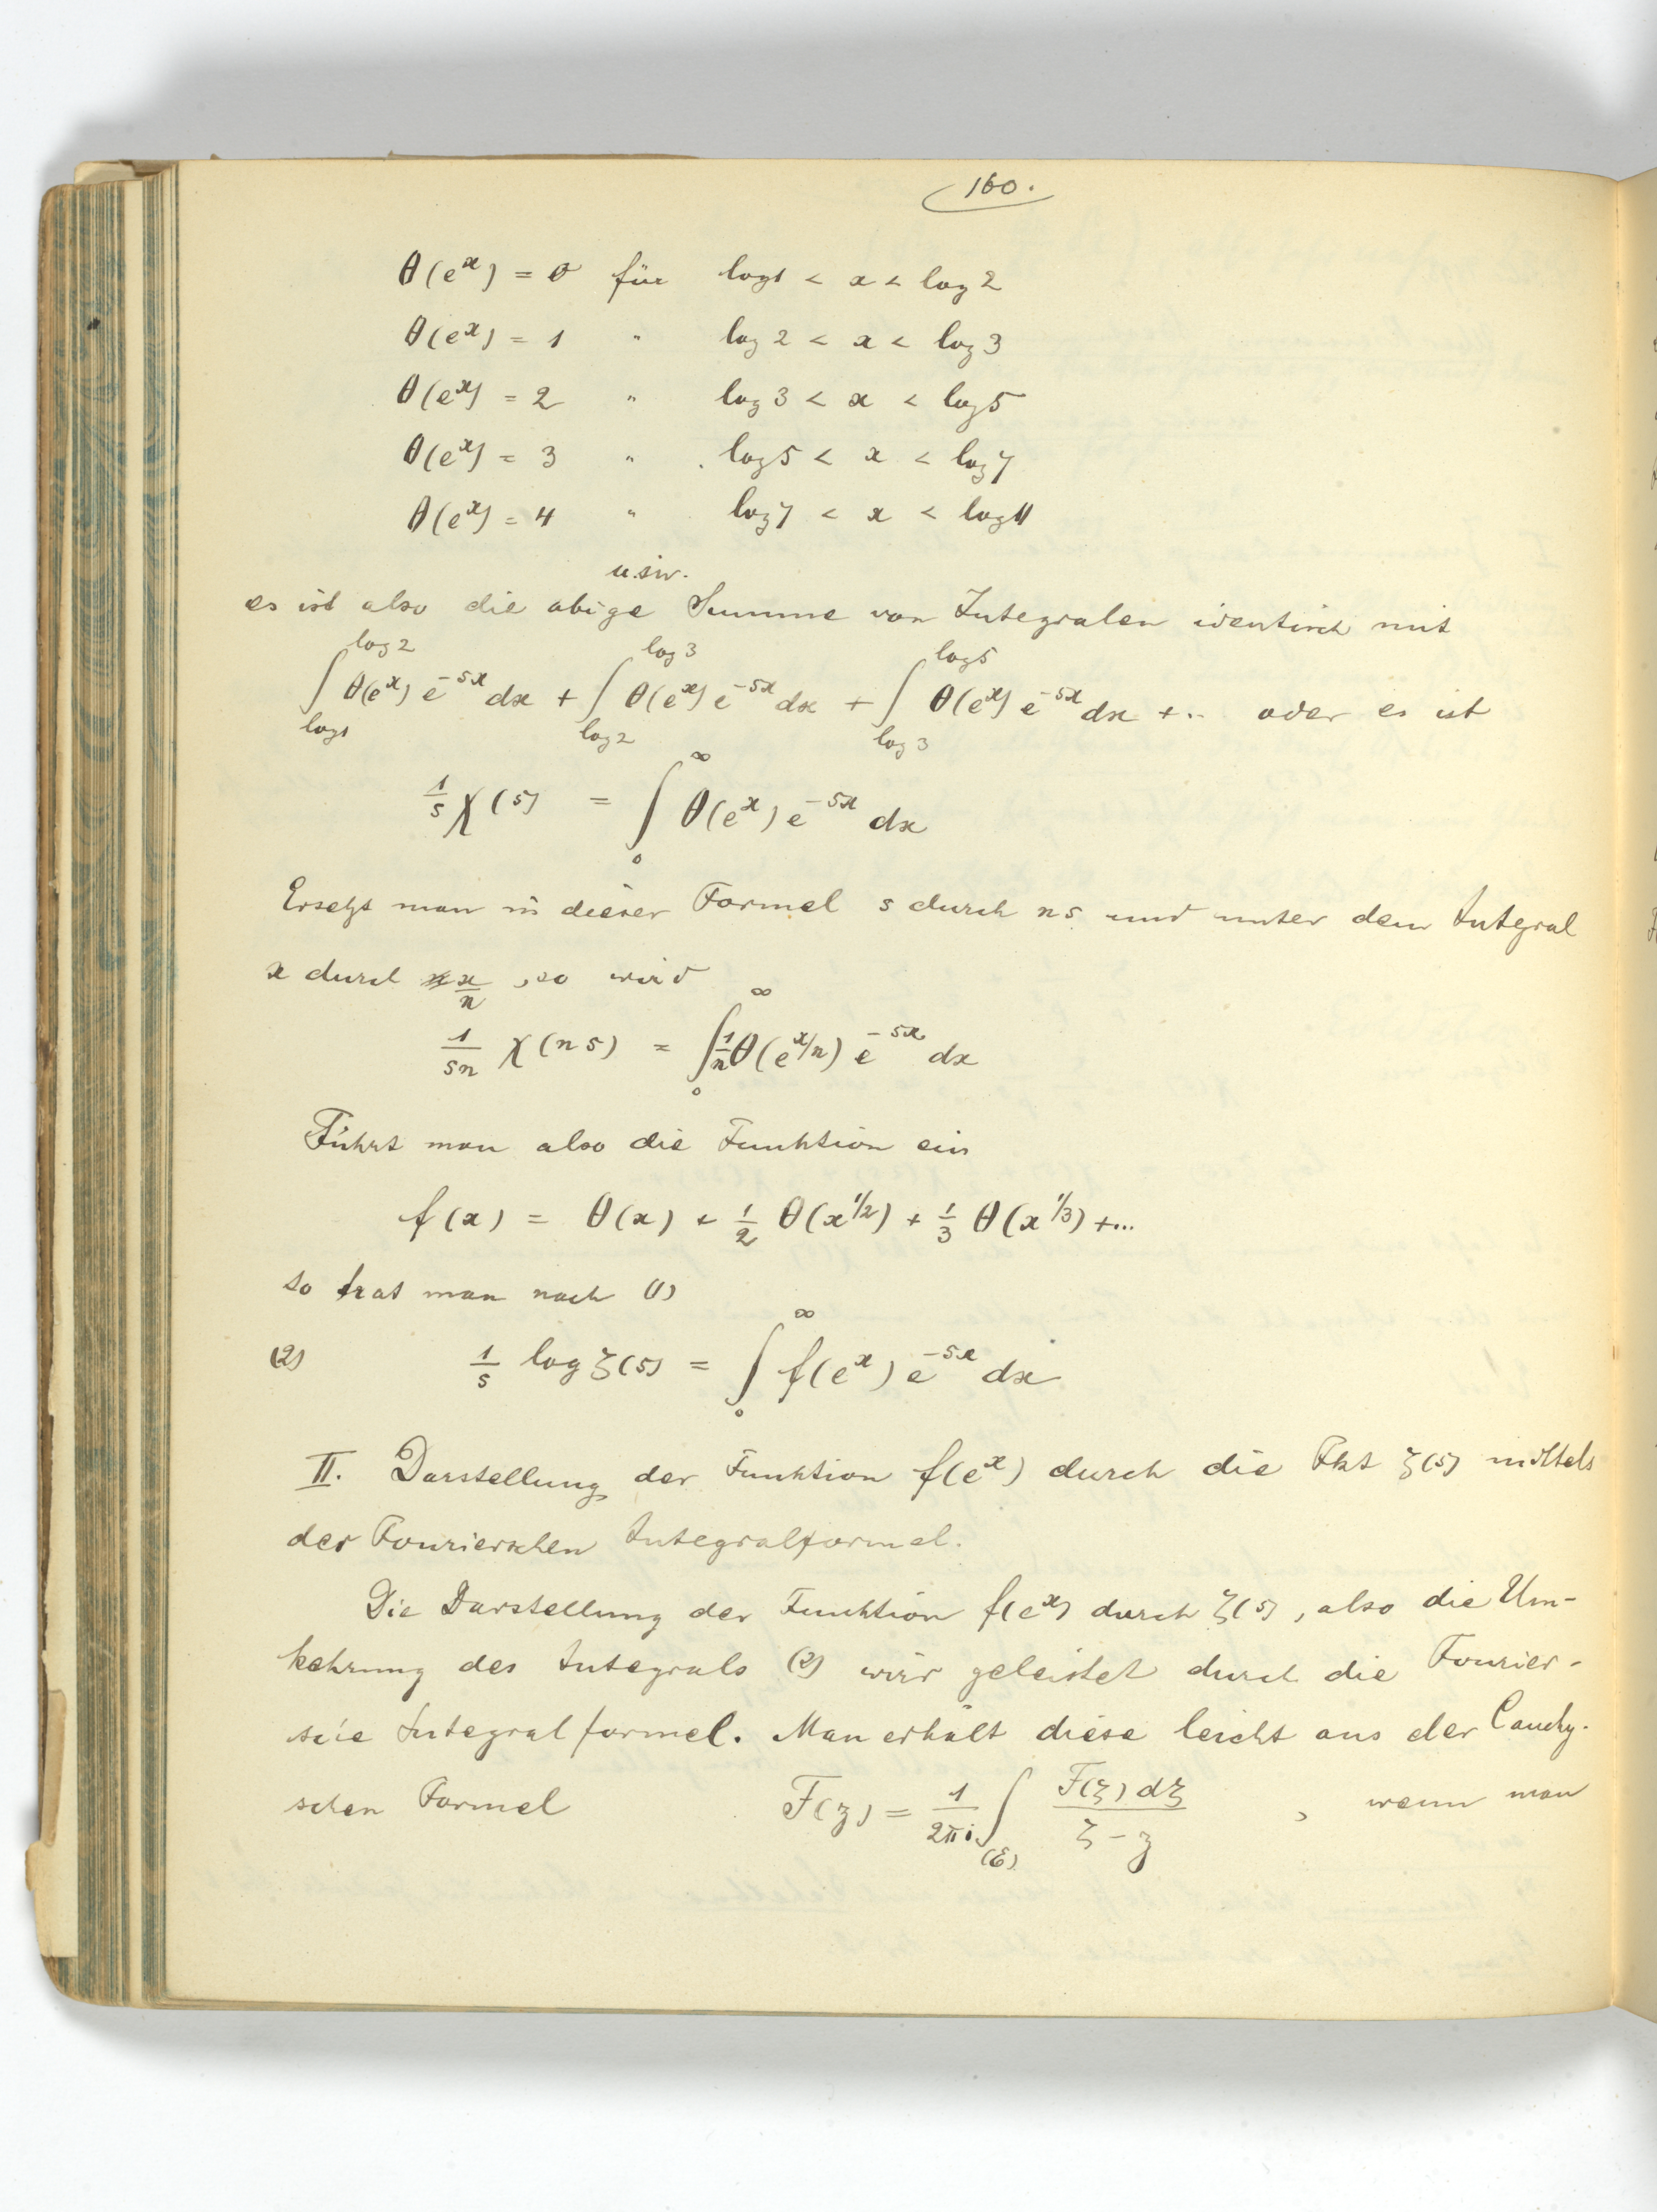 160.
θ(e^x) = 0 für log1 < x < log 2
θ(e^x) = 1 " log 2 < x < log 3
θ(e^x) = 2 " log 3 < x < log 5
θ(e^x) = 3 " log 5 < x < log 7
θ(e^x) = 4 " log 7 < x < log 11
u.sw.
es ist also die obige Summe von Integralen identisch mit
∫_{log1}^{log 2} θ(e^x) e^{-sx} dx + ∫_{log 2}^{log 3} θ(e^x) e^{-sx} dx + ∫_{log 3}^{log 5} θ(e^x) e^{-sx} dx + .. oder es ist
1/s χ(s) = ∫_0^∞ θ(e^x) e^{-sx} dx
Ersetzt man in dieser Formel s durch ns und unter dem Integral
x durch x/n, so wird
1/sn χ(ns) = ∫_0^∞ 1/n θ(e^{x/n}) e^{-sx} dx
Führt man also die Funktion ein
f(x) = θ(x) + 1/2 θ(x^{1/2}) + 1/3 θ(x^{1/3}) + ...
so hat man nach (1)
(2) 1/s log ζ(s) = ∫_0^∞ f(e^x) e^{-sx} dx
II. Darstellung der Funktion f(e^x) durch die Fkt ζ(s) mittels
der Fourierschen Integralformel.
Die Darstellung der Funktion f(e^x) durch ζ(s), also die Um-
kehrung des Integrals (2) wird geleistet durch die Fourier-
sche Integralformel. Man erhält diese leicht aus der Cauchy-
schen Formel F(z) = 1/2πi ∫_{(C)} F(ζ) dζ / ζ - z , wenn man